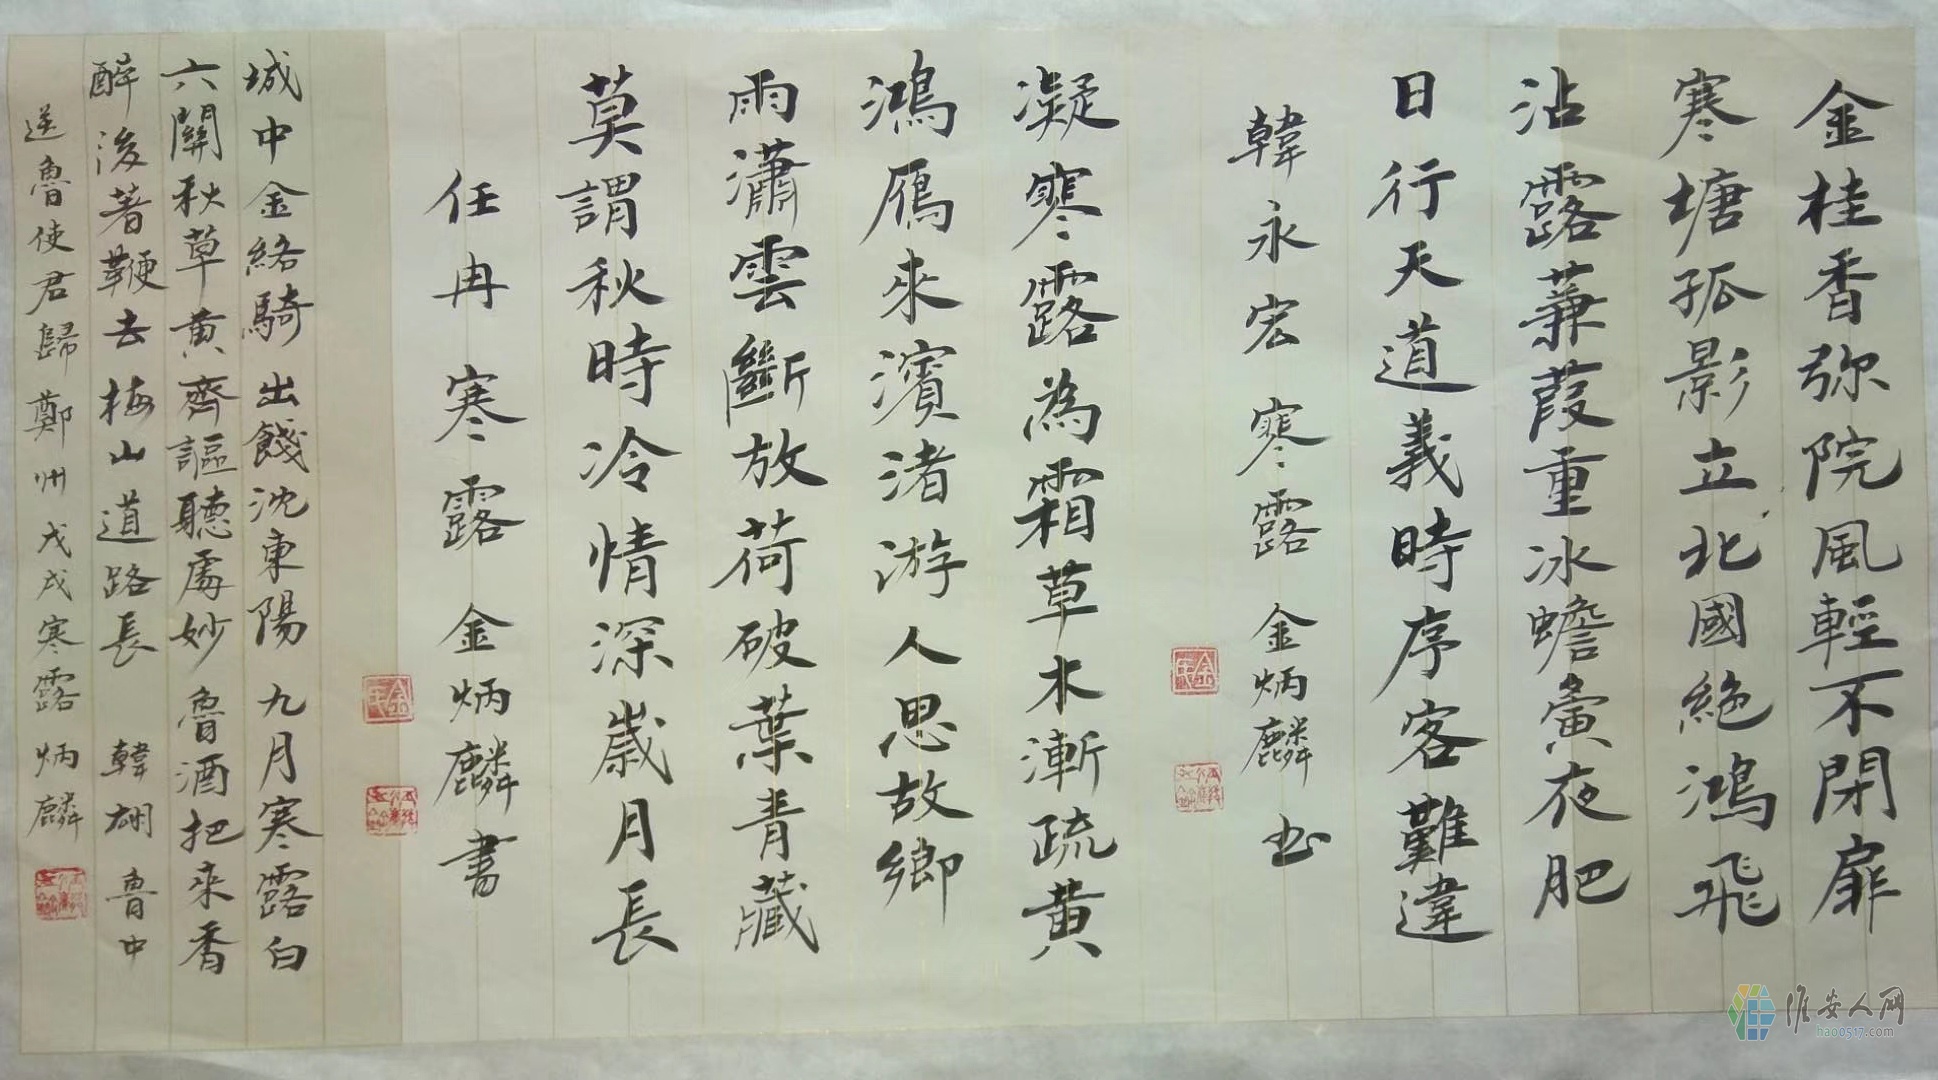 金桂香弥院風輕不閉扉
寒塘孤影立北國絕鴻飛
沾露蒹葭重冰蟾彙夜肥
日行天道義時序客難違
韓永宏 寒露 金炳麟 书
凝寒露為霜草木漸疏黄
鴻雁來濱渚游人思故鄉
雨瀟雲斷放荷破葉青藏
莫謂秋時冷情深歲月長
任冉 寒露 金炳麟書
城中金絡騎出餞沈東陽九月寒露白
六關秋草黄齊謳聽處妙魯酒把來香
醉後著鞭去梅山道路長 韓翃 魯中
送魯使君歸鄭州戊戌寒露 炳麟
淮安人网
hao0517.com